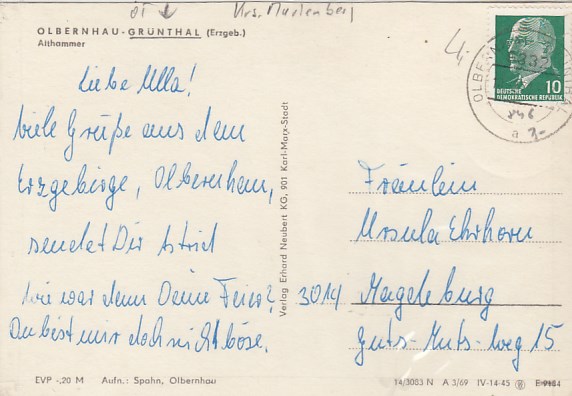 OT ↓ Krs. Marienberg
OLBERNHAU-GRÜNTHAL (Erzgeb.)
Althammer
Liebe Ulla!
viele Grüße aus dem
Erzgebirge, Olbernhau,
sendet Dir Astrid
wie war denn Deine Feier?
Du bist mir doch nicht böse.
Verlag Erhard Neubert KG, 901 Karl-Marx-Stadt
DEUTSCHE
DEMOKRATISCHE REPUBLIK
10
a
Fräulein
Ursula Ehrhorn
3014 Magdeburg
Guts-Muts-Weg 15
EVP -,20 M Aufn.: Spahn, Olbernhau
14/3083 N A 3/69 IV-14-45